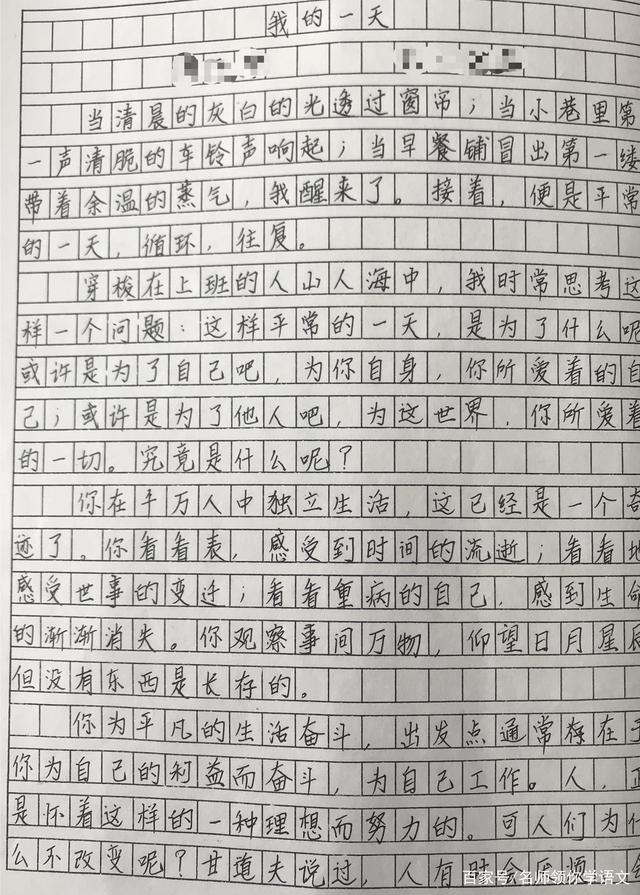 我的一天
当清晨的灰白的光透过窗帘；当小巷里第
一声清脆的车铃声响起；当早餐铺冒出第一缕
带着余温的蒸气，我醒来了。接着，便是平常
的一天，循环，往复。
穿梭在上班的人山人海中，我时常思考这
样一个问题：这样平常的一天，是为了什么呢
或许是为了自己吧，为你自身，你所爱着的自
己；或许是为了他人吧，为这世界，你所爱着
的一切。究竟是什么呢？
你在千万人中独立生活，这已经是一个奇
迹了。你看看表，感受到时间的流逝；看看地
感受世事的变迁；看看重病的自己，感到生命
的渐渐消失。你观察事间万物，仰望日月星辰
但没有东西是长存的。
你为平凡的生活奋斗，出发点通常存在于
你为自己的利益而奋斗，为自己工作。人，正
是怀着这样的一种理想而努力的。可人们为什
么不改变呢？甘道夫说过，人有时会
百家号/名师领你学语文